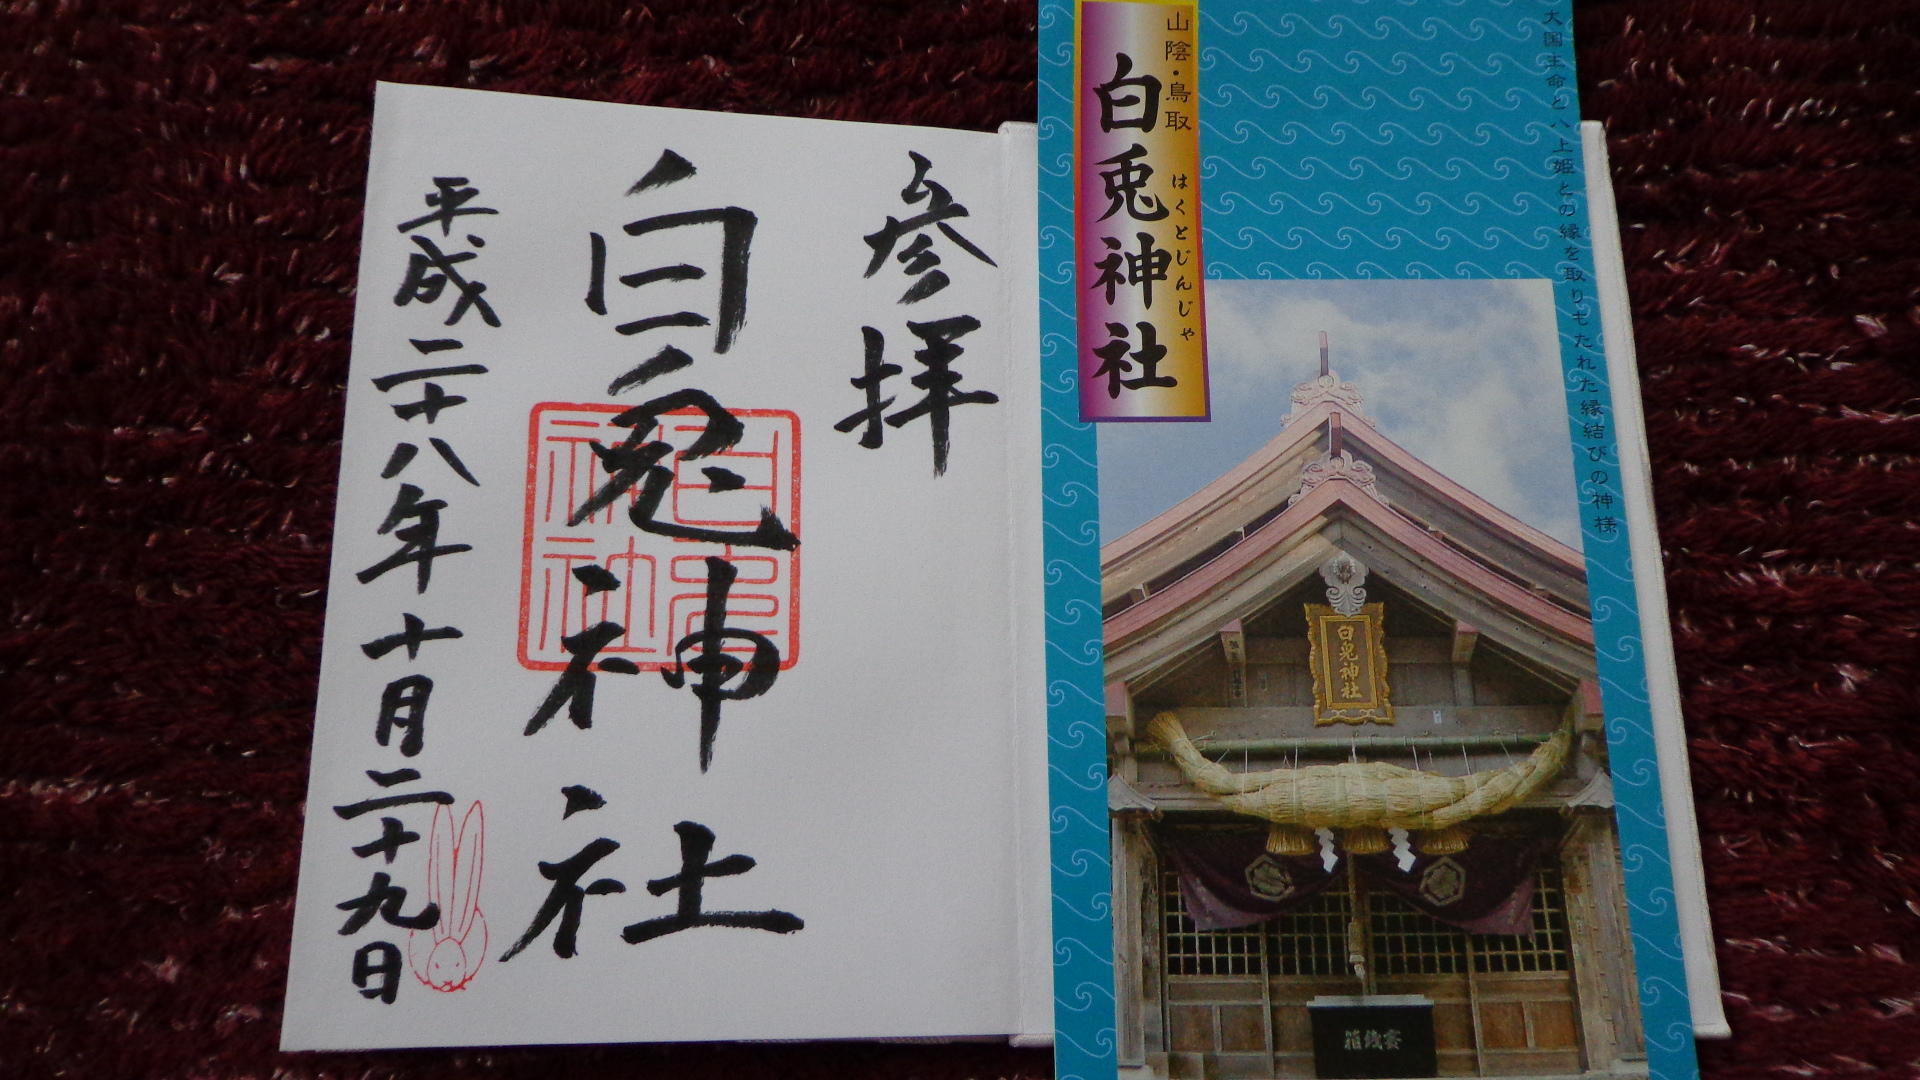 参拝
白兎神社
平成二十八年十月二十九日
白兎神社
大国主命と八上姫との縁を取りもたれた縁結びの神様
山陰・鳥取
はくとじんじゃ
白兎神社
白兎神社
賽銭箱